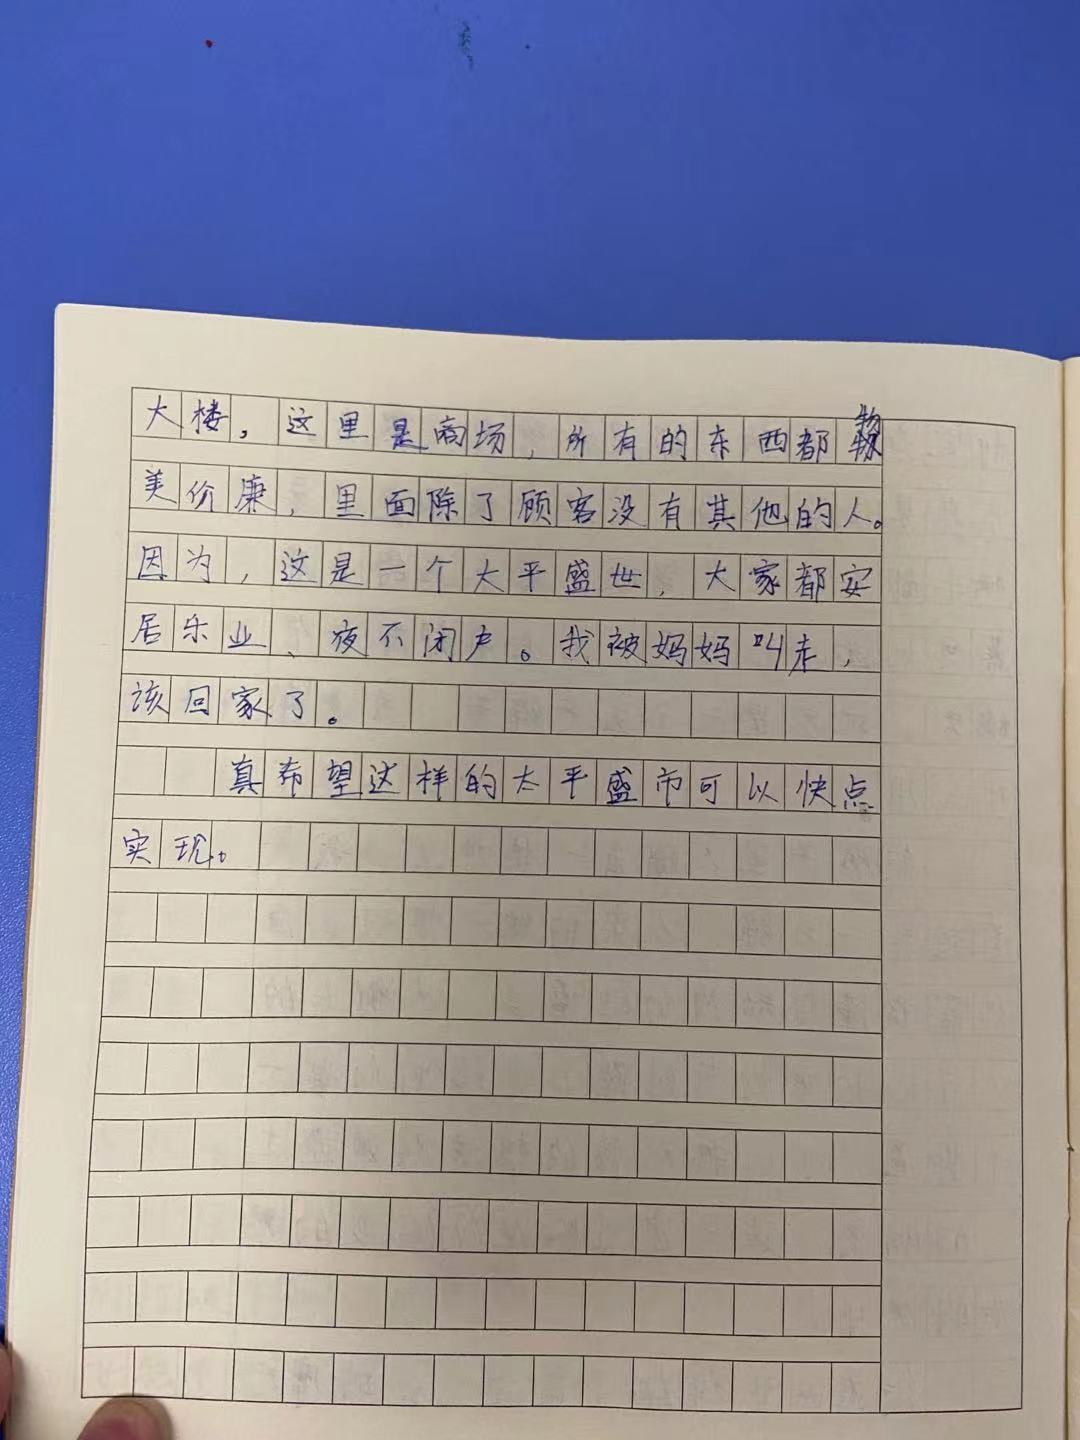 大楼，这里是商场，所有的东西都物
美价廉，里面除了顾客没有其他的人。
因为，这是一个太平盛世，大家都安
居乐业、夜不闭户。我被妈妈叫走，
该回家了。
真希望这样的太平盛市可以快点
实现。